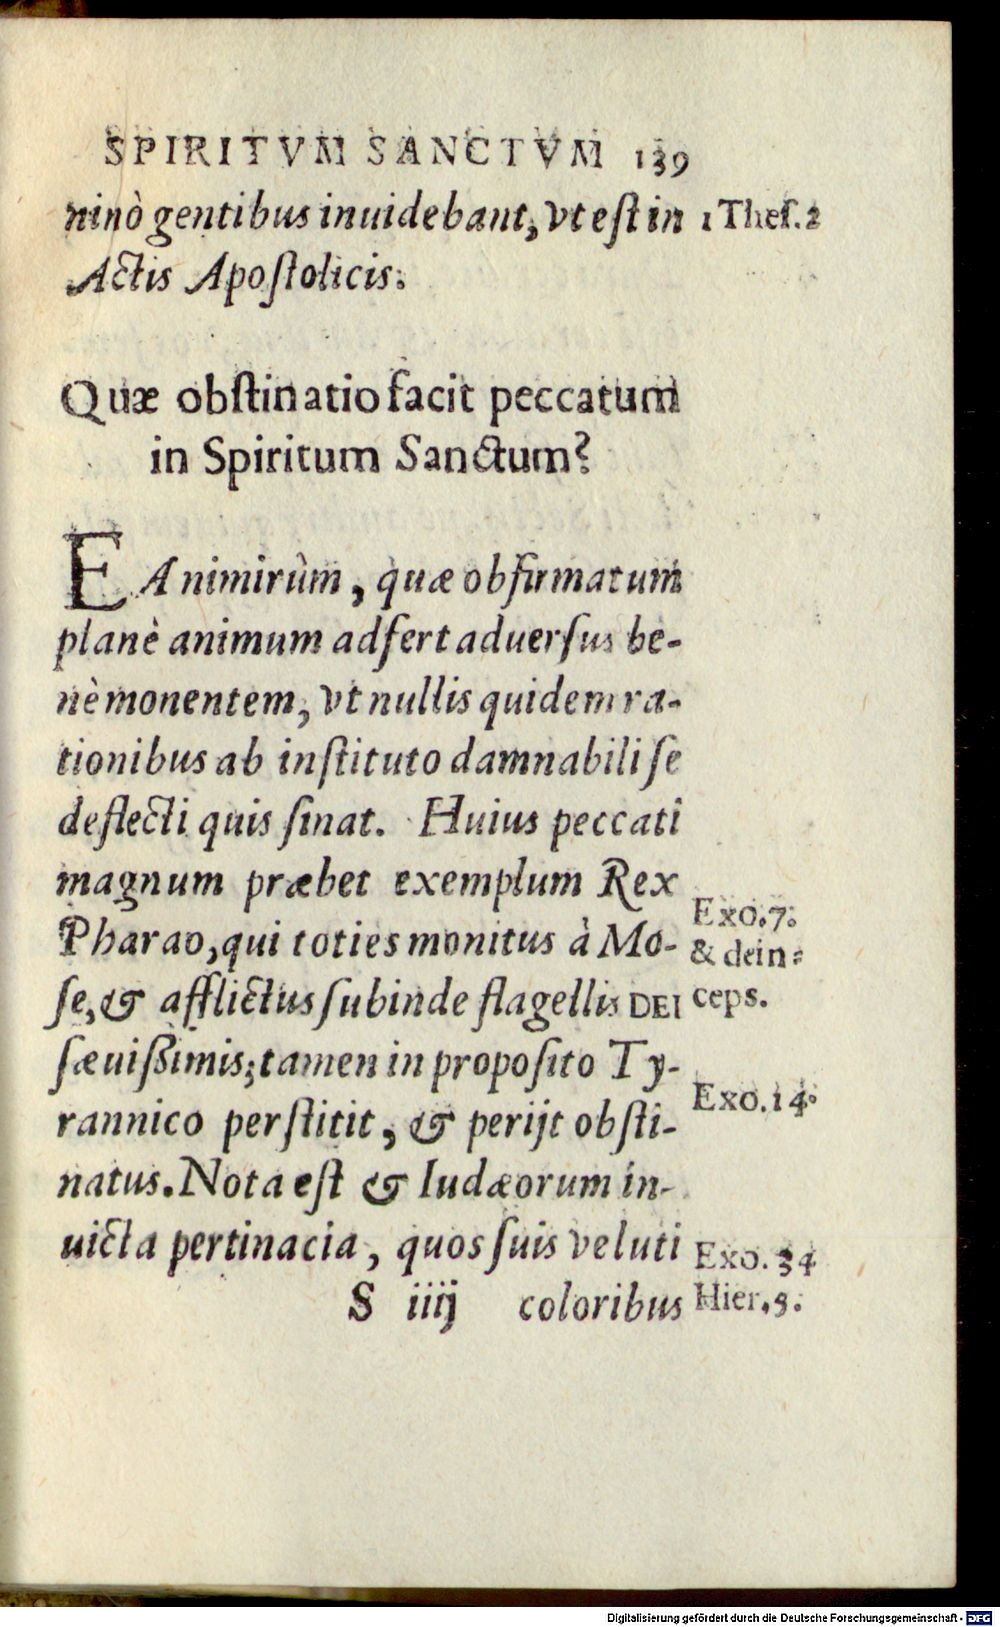 SPIRITVM SANCTVM 139
ninò gentibus inuidebant, vt eſt in 1 Theſ. 2
Actis Apoſtolicis.
Quæ obſtinatio facit peccatum
in Spiritum Sanctum?
EA nimirùm, quæ obfirmatum
planè animum adfert aduerſus be-
nè monentem, vt nullis quidem ra-
tionibus ab inſtituto damnabili ſe
deflecti quis ſinat. Huius peccati
magnum præbet exemplum Rex
Pharao, qui toties monitus à Mo-
ſe, & afflictus ſubinde flagellis DEI
ſæuiſſimis; tamen in propoſito Ty-
rannico perſtitit, & perijt obſti-
natus. Nota eſt & Iudæorum in-
uicta pertinacia, quos ſuis veluti
S iiij coloribus
Exo. 7.
& dein-
ceps.
Exo. 14.
Exo. 34
Hier. 5.
Digitalisierung gefördert durch die Deutsche Forschungsgemeinschaft - DFG